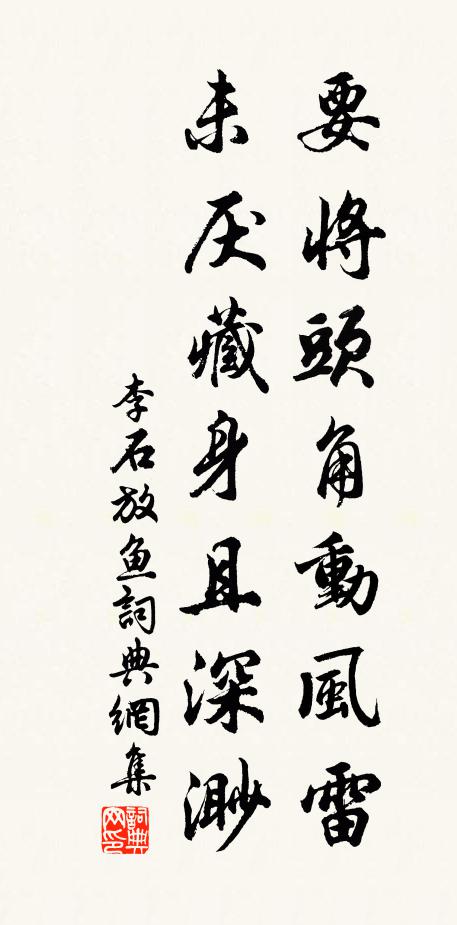 要將頭角動風雷
未厌藏身且深渺
李石放鱼詞典網集
詞典网印